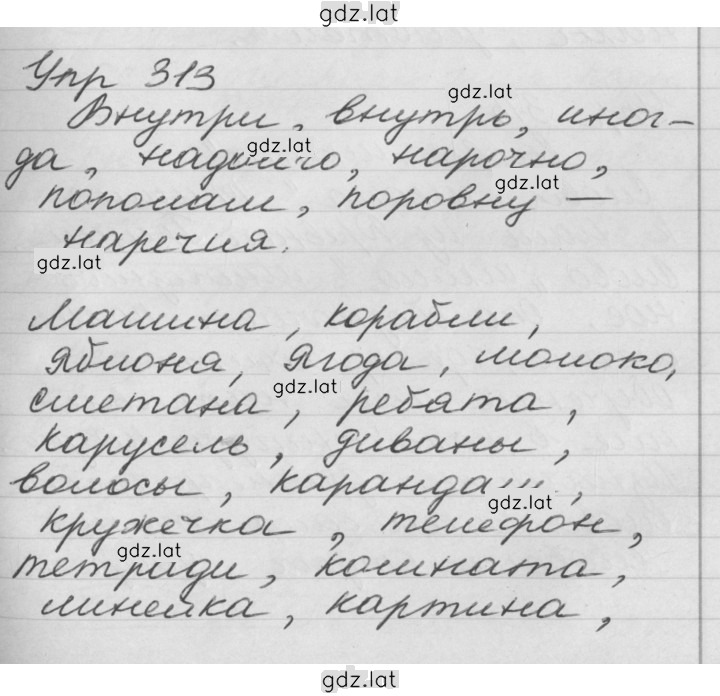 gdz.lat
Упр 313
gdz.lat
Внутри, внутрь, иног-
gdz.lat
да, надолго, нарочно,
gdz.lat
пополам, поровну —
наречия.
gdz.lat
Машина, корабли,
Яблоня, Ягода, молоко,
gdz.lat
сметана, ребята,
карусель, диваны,
волосы, карандаш,
gdz.lat
кружечка, телефон,
gdz.lat
тетради, комната,
линейка, картина,
gdz.lat